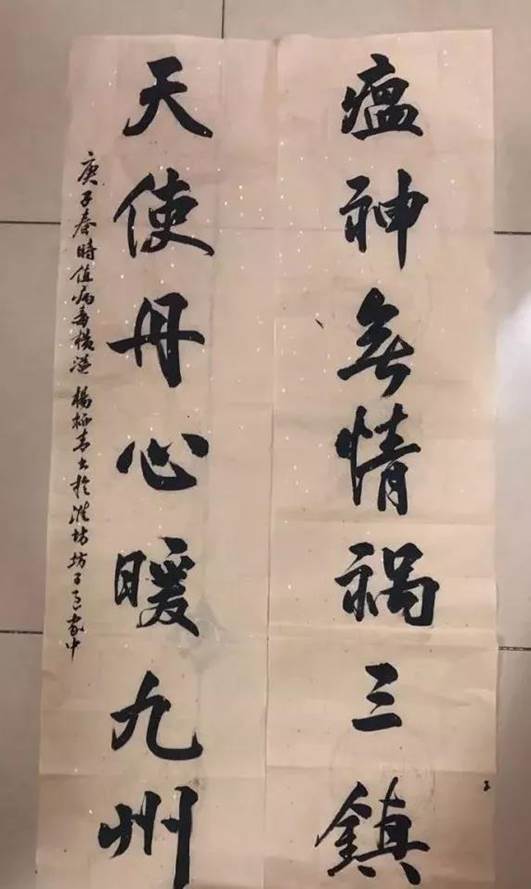 瘟神無情祸三鎮
天使丹心暖九州
庚子春時值病毒横溢 楊柳青書於潍坊坊子区家中